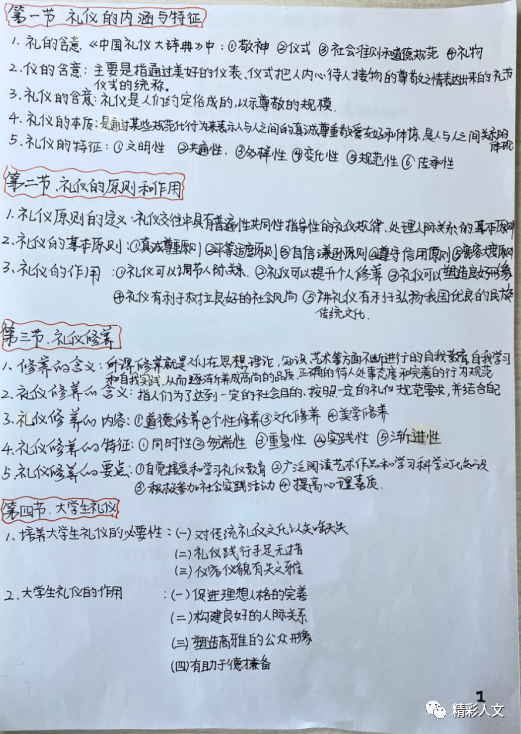 第一节 礼仪的内涵与特征
1. 礼的含意.《中国礼仪大辞典》中: ①敬神 ②仪式 ③社会准则和道德规范 ④礼物
2. 仪的含意: 主要是指通过美好的仪表、仪式把人内心待人接物的尊敬之情表达出来的礼节
仪式的统称.
3. 礼仪的含意: 礼仪是人们约定俗成的,以示尊敬的规模.
4. 礼仪的本质: 是通过某些规范化行为来表示人与人之间的真诚尊重敬爱友好和体谅,是人与人之间关系的
体现
5. 礼仪的特征: ①文明性 ②共通性. ③多样性 ④变化性 ⑤规范性 ⑥传承性
第二节.礼仪的原则和作用
1. 礼仪原则的定义: 礼仪交往中具有普遍性共同性指导性的礼仪规律,处理人际关系的基本原则
2. 礼仪的基本原则: ①真诚尊重原则 ②平等适度原则 ③自信谦逊原则 ④遵守信用原则 ⑤宽容大度原则
3. 礼仪的作用 : ①礼仪可以调节人际关系. ②礼仪可以提升个人修养 ③礼仪可以塑造良好形象
④礼仪有利于树立良好的社会风尚 ⑤讲礼仪有利于弘扬我国优良的民族
传统文化.
第三节.礼仪修养
1. 修养的含义: 所谓修养就是人们在思想,理论,知识,艺术等方面不断进行的自我教育,自我学习
和自我实践,从而逐渐养成高尚的品质,正确的待人处事态度和完善的行为规范
2. 礼仪修养的含义: 指人们为了达到一定的社会目的,按照一定的礼仪规范要求,并结合
3. 礼仪修养的内容: ①道德修养 ②个性修养 ③文化修养 ④美学修养
4. 礼仪修养的特征: ①同时性 ②多端性 ③重复性 ④实践性 ⑤渐进性
5. 礼仪修养的要点: ①自觉接受和学习礼仪教育 ②广泛阅读艺术作品和学习科学文化知识
③积极参加社会实践活动 ④提高心理素质.
第四节.大学生礼仪
1. 培养大学生礼仪的必要性: (一) 对传统礼仪文化认知缺失
(二) 礼仪践行手足无措
(三) 仪容仪貌有失文雅
2. 大学生礼仪的作用 : (一) 促进理想人格的完善
(二) 构建良好的人际关系
(三) 塑造高雅的公众形象
(四) 有助于德才兼备
1
精彩人文